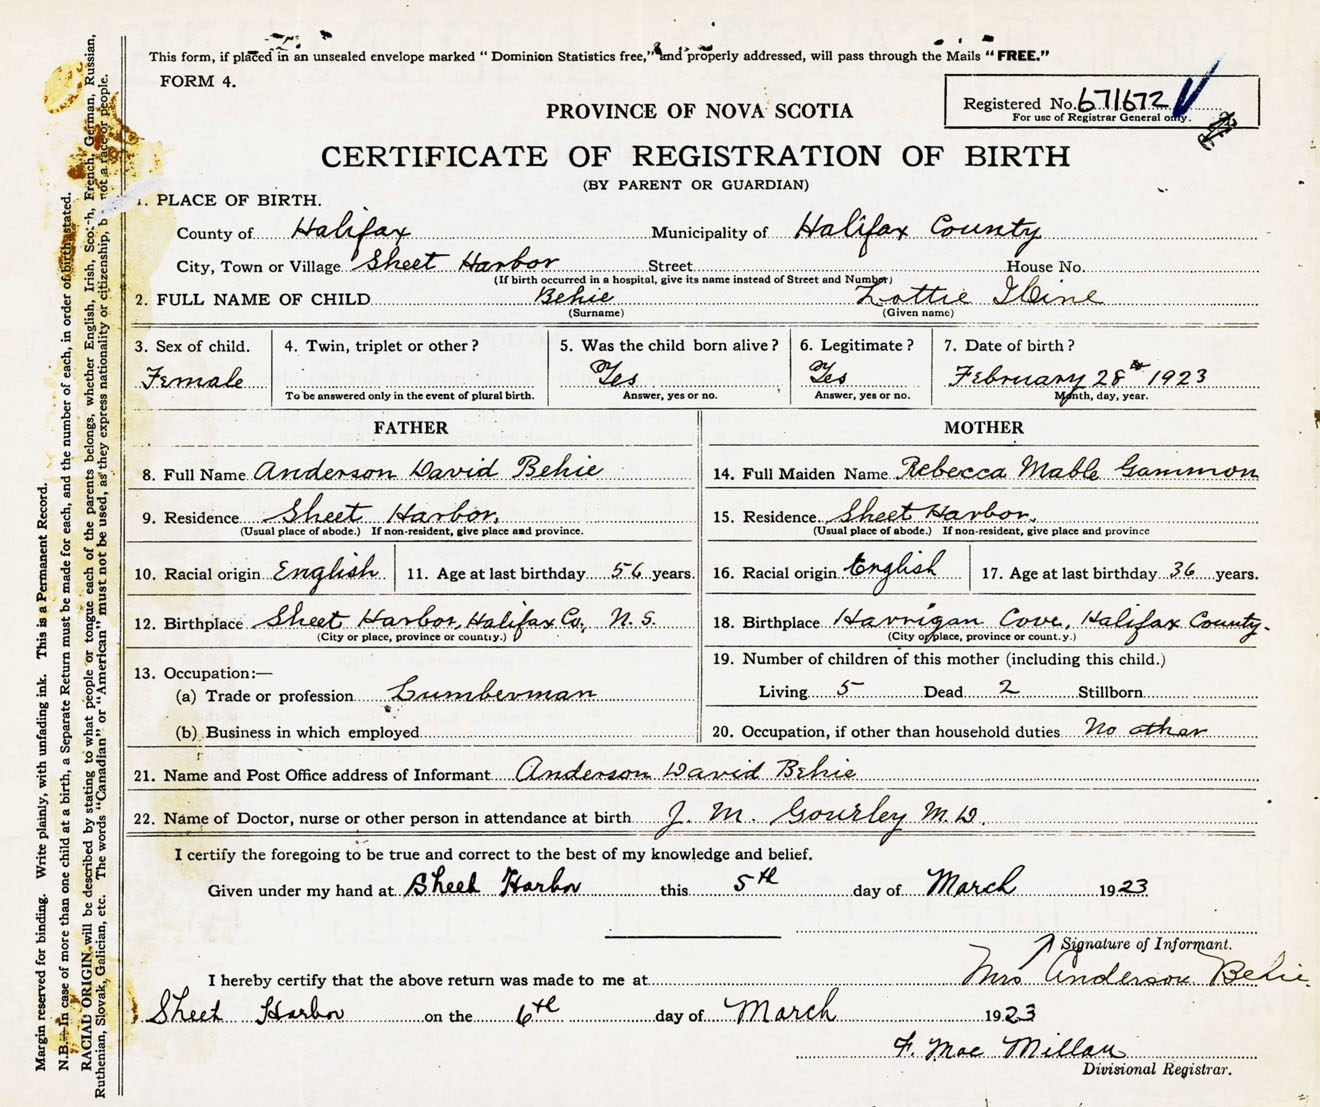 This form, if placed in an unsealed envelope marked " Dominion Statistics free," and properly addressed, will pass through the Mails "FREE."
FORM 4.
Registered No. 671672
For use of Registrar General only.
PROVINCE OF NOVA SCOTIA
CERTIFICATE OF REGISTRATION OF BIRTH
(BY PARENT OR GUARDIAN)
1. PLACE OF BIRTH.
County of Halifax Municipality of Halifax County
City, Town or Village Sheet Harbor Street House No.
(If birth occurred in a hospital, give its name instead of Street and Number)
2. FULL NAME OF CHILD Behie Lottie
(Surname) (Given name)
3. Sex of child. 4. Twin, triplet or other? 5. Was the child born alive? 6. Legitimate? 7. Date of birth?
Female Yes Yes February 28th 1923
To be answered only in the event of plural birth. Answer, yes or no. Answer, yes or no. Month, day, year.
FATHER
8. Full Name Anderson David Behie
9. Residence Sheet Harbor,
(Usual place of abode.) If non-resident, give place and province.
10. Racial origin English 11. Age at last birthday 56 years.
12. Birthplace Sheet Harbor, Halifax Co., N.S.
(City or place, province or country.)
13. Occupation:—
(a) Trade or profession Lumberman
(b) Business in which employed
MOTHER
14. Full Maiden Name Rebecca Mable Gammon
15. Residence Sheet Harbor.
(Usual place of abode.) If non-resident, give place and province
16. Racial origin English 17. Age at last birthday 36 years.
18. Birthplace Harrigan Cove, Halifax County.
(City or place, province or country.)
19. Number of children of this mother (including this child.)
Living 5 Dead 2 Stillborn
20. Occupation, if other than household duties No other
21. Name and Post Office address of Informant Anderson David Behie
22. Name of Doctor, nurse or other person in attendance at birth J. M. Gourley M.D.
I certify the foregoing to be true and correct to the best of my knowledge and belief.
Given under my hand at Sheet Harbor this 5th day of March 1923
Signature of Informant.
Mrs Anderson Behie
I hereby certify that the above return was made to me at
Sheet Harbor on the 6th day of March 1923
F. Mac Millan
Divisional Registrar.
Margin reserved for binding. Write plainly, with unfading ink. This is a Permanent Record.
N.B.—In case of more than one child at a birth, a Separate Return must be made for each, and the number of each, in order of birth stated.
RACIAL ORIGIN will be described by stating to what people or tongue each of the parents belongs, whether English, Irish, Scotch, French, German, Russian,
Ruthenian, Slovak, Galician, etc. The words "Canadian" or "American" must not be used, as they express nationality or citizenship, b not a race or people.